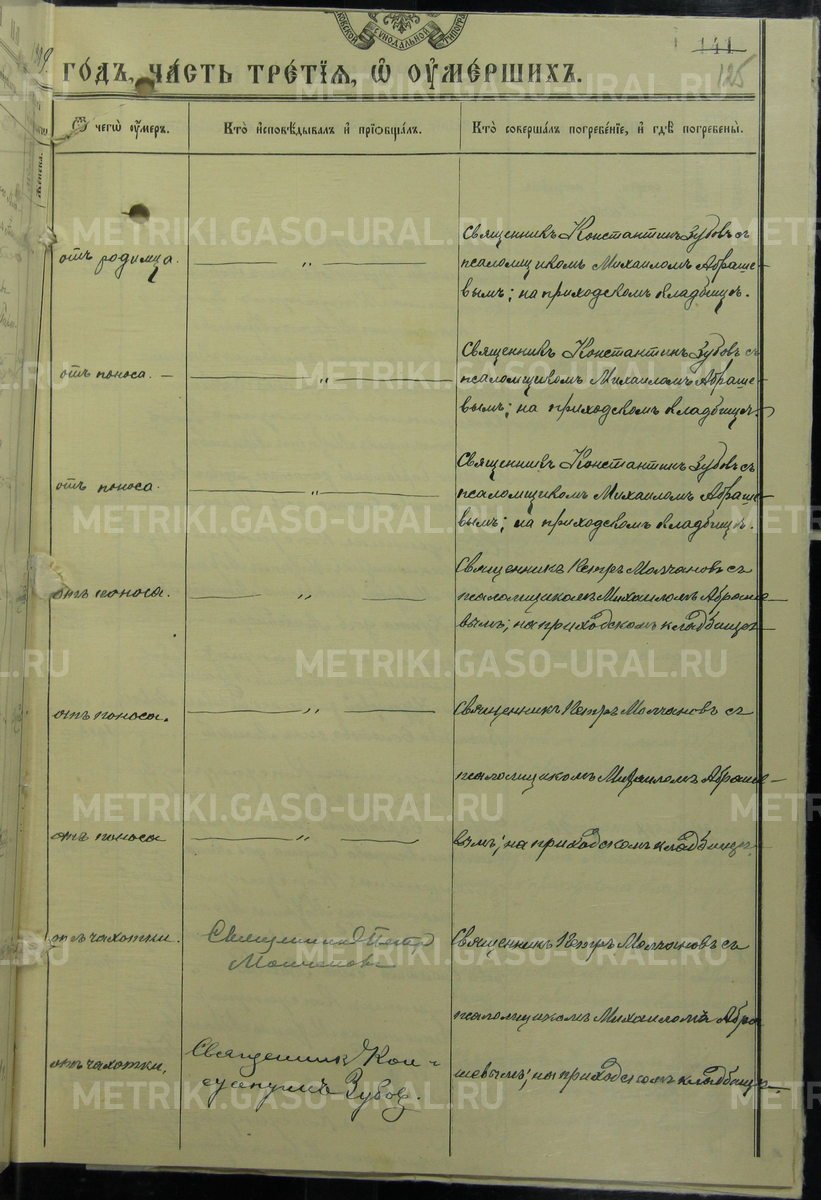 СУНОДАЛЬНОЙ ТИПОГРА
141
125
ГОДЪ, ЧАСТЬ ТРЕТІЯ, Ѿ ОУМЕРШИХЪ.
Ѿ чегѡ оумеръ.
Кто исповѣдывалъ и пріобщалъ.
Кто совершалъ погребеніе, и гдѣ погребены.
отъ родимца.
— „ —
Священникъ Константинъ Зубовъ съ
псаломщикомъ Михаиломъ Абраше-
вымъ; на приходскомъ кладбищѣ.
отъ поноса. —
— „ —
Священникъ Константинъ Зубовъ съ
псаломщикомъ Михаиломъ Абраше-
вымъ; на приходскомъ кладбищѣ.
отъ поноса.
— „ —
Священникъ Константинъ Зубовъ съ
псаломщикомъ Михаиломъ Абраше-
вымъ; на приходскомъ кладбищѣ.
отъ поноса.
— „ —
Священникъ Петръ Молчановъ съ
псаломщикомъ Михаиломъ Абраше-
вымъ; на приходскомъ кладбищѣ
отъ поноса.
— „ —
Священникъ Петръ Молчановъ съ
псаломщикомъ Михаиломъ Абраше-
отъ поноса
— „ —
вымъ; на приходскомъ кладбищѣ.
отъ чахотки.
Священникъ Петръ
Молчановъ
Священникъ Петръ Молчановъ съ
псаломщикомъ Михаиломъ Абра
отъ чахотки.
Священникъ Кон-
стантинъ Зубовъ.
шевымъ; на приходскомъ кладбищѣ.
METRIKI.GASO-URAL.RU